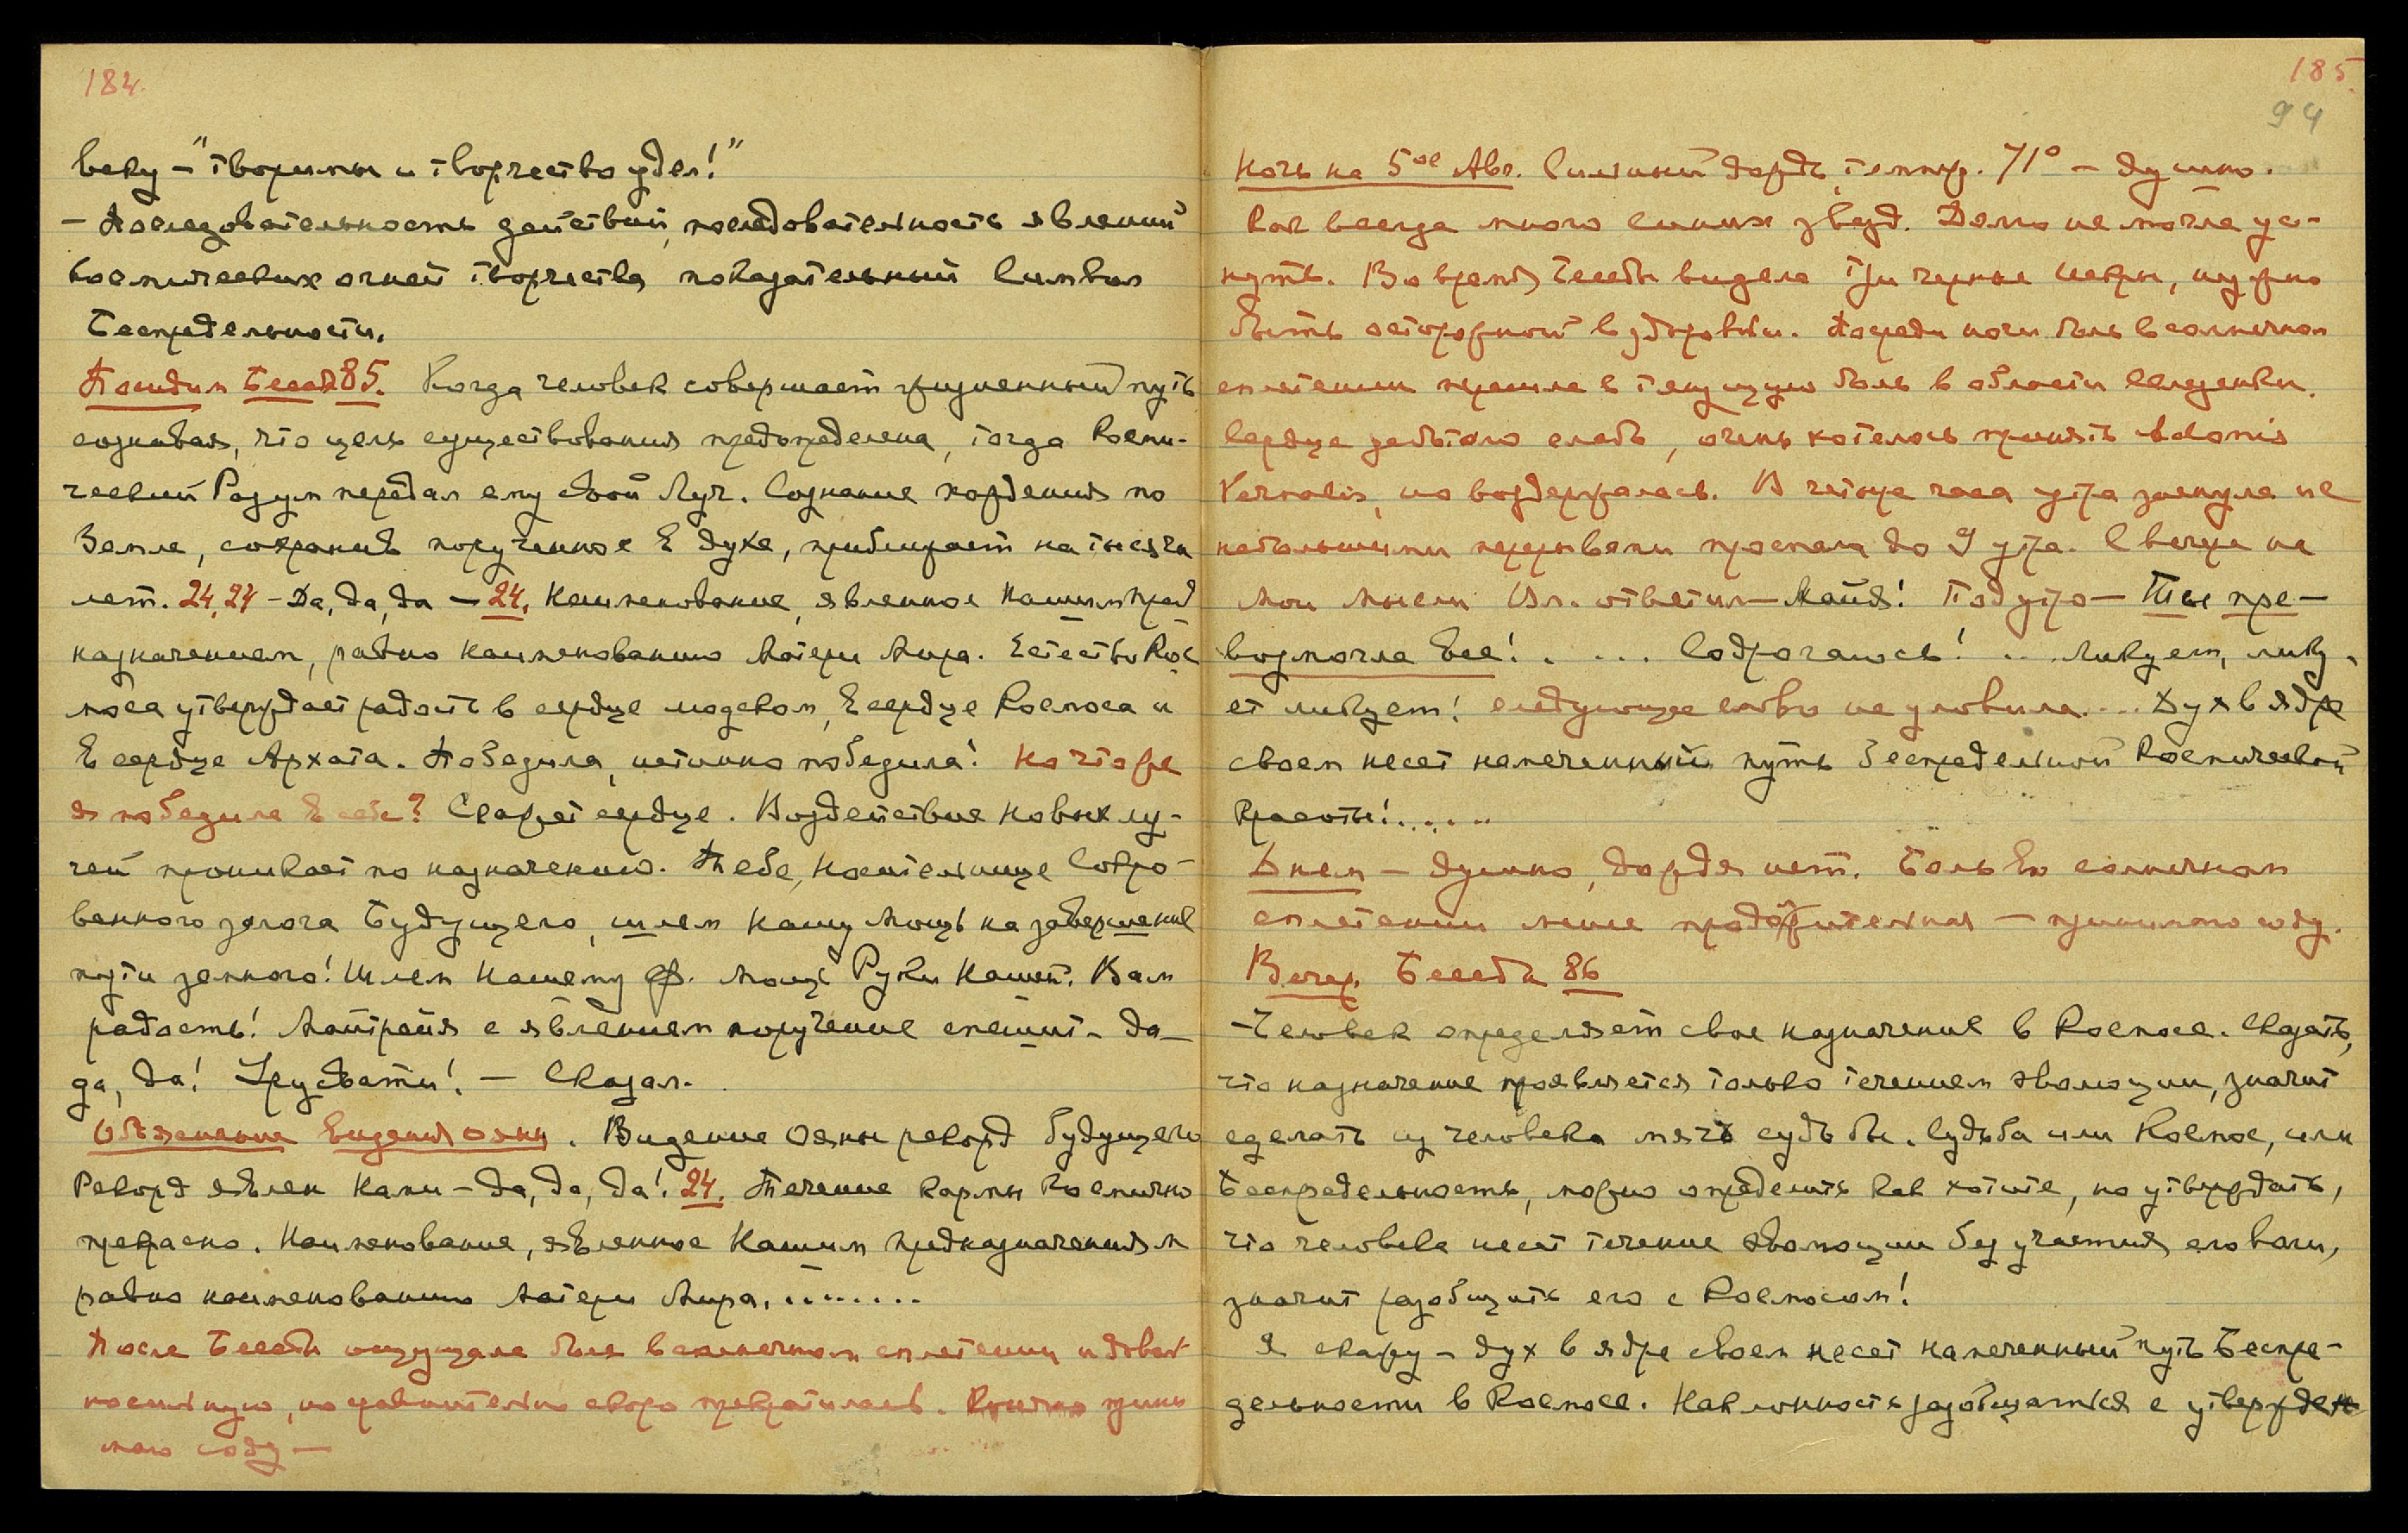 184
веку – "творимы и творчество удел!"
– Последовательность действий, последовательность явлений
космических огней творчества, показательный символ
Беспредельности.
Посидим Беседа 85. Когда человек совершает жизненный путь
сознавая, что цель существования предопределена, тогда Косми-
ческий Разум передал ему свой Луч. Сознание хождения по
Земле, сохранив порученное в духе, приближает на тысячи
лет. 24, 24 – Да, да, да – 24. Наименование, явленное Нашим пред
назначением, равно наименованию Матери Мира. Естество Кос
моса утверждает радость в сердце людском, в сердце Космоса и
в сердце Архата. Победила, истинно победила! Но что же
я победила в себе? Скажет сердце. Воздействие новых лу-
чей проникает по назначению. Тебе, Носительнице Сокро-
венного залога Будущего, шлем Нашу Мощь на завершение
пути земного! Шлем Нашему Ф. Мощь Руки Нашей. Вам
радость! Майтрейя с явлением поручение спешит – да –
да, да! Урусвати! – Сказал.
Объяснение Видения Ояны. Видение Ояны рекорд будущего
Рекорд явлен Нами – да, да, да! 24. Течение кармы космично
прекрасно. Наименование, явленное Нашим предназначением
равно наименованию Матери Мира. . . . . . . .
После Беседы ощущала боль в солнечном сплетении и доволь
но сильную, но сравнительно скоро прекратилась. прини
мала соду –
185
94
Ночь на 5ое Авг. Сильный дождь, темпер. 71° – душно.
Как всегда много синих звезд. Долго не могла ус-
нуть. Во время Беседы видела три черные искры, нужно
быть осторожной в здоровьи. Посреди ночи боль в солнечном
сплетении перешла в тянущую боль в области селезенки.
Сердце работало слабо, очень хотелось принять Adonis
Vernalis, но воздержалась. В четыре часа утра заснула и с
небольшими перерывами проспала до 9 утра. С вечера на
мои мысли Вл. ответил – Майя! Под утро – Ты пре-
возмогла Все! . . . . Содрогаюсь! . . . Ликуем, лику-
ет ликуем! следующее слово не уловила. . . . Дух в ядре
своем несет намеченный путь беспредельной Космической
Красоты! . . . . .
Днем – душно, дождя нет. Боль во солнечном
сплетении менее продолжительная – принимала соду.
Вечер. Беседа 86
– Человек определяет свое назначение в Космосе. Сказать,
что назначение проявляется только течением эволюции, значит
сделать из человека мяч судьбы. Судьба или Космос, или
Беспредельность, можно определить как хотите, но утверждать,
что человека несет течение эволюции без участия его воли,
значит разобщить его с Космосом!
Я скажу – дух в ядре своем несет намеченный путь Беспре-
дельности в Космосе. Наклонность разобщаться с утвержден